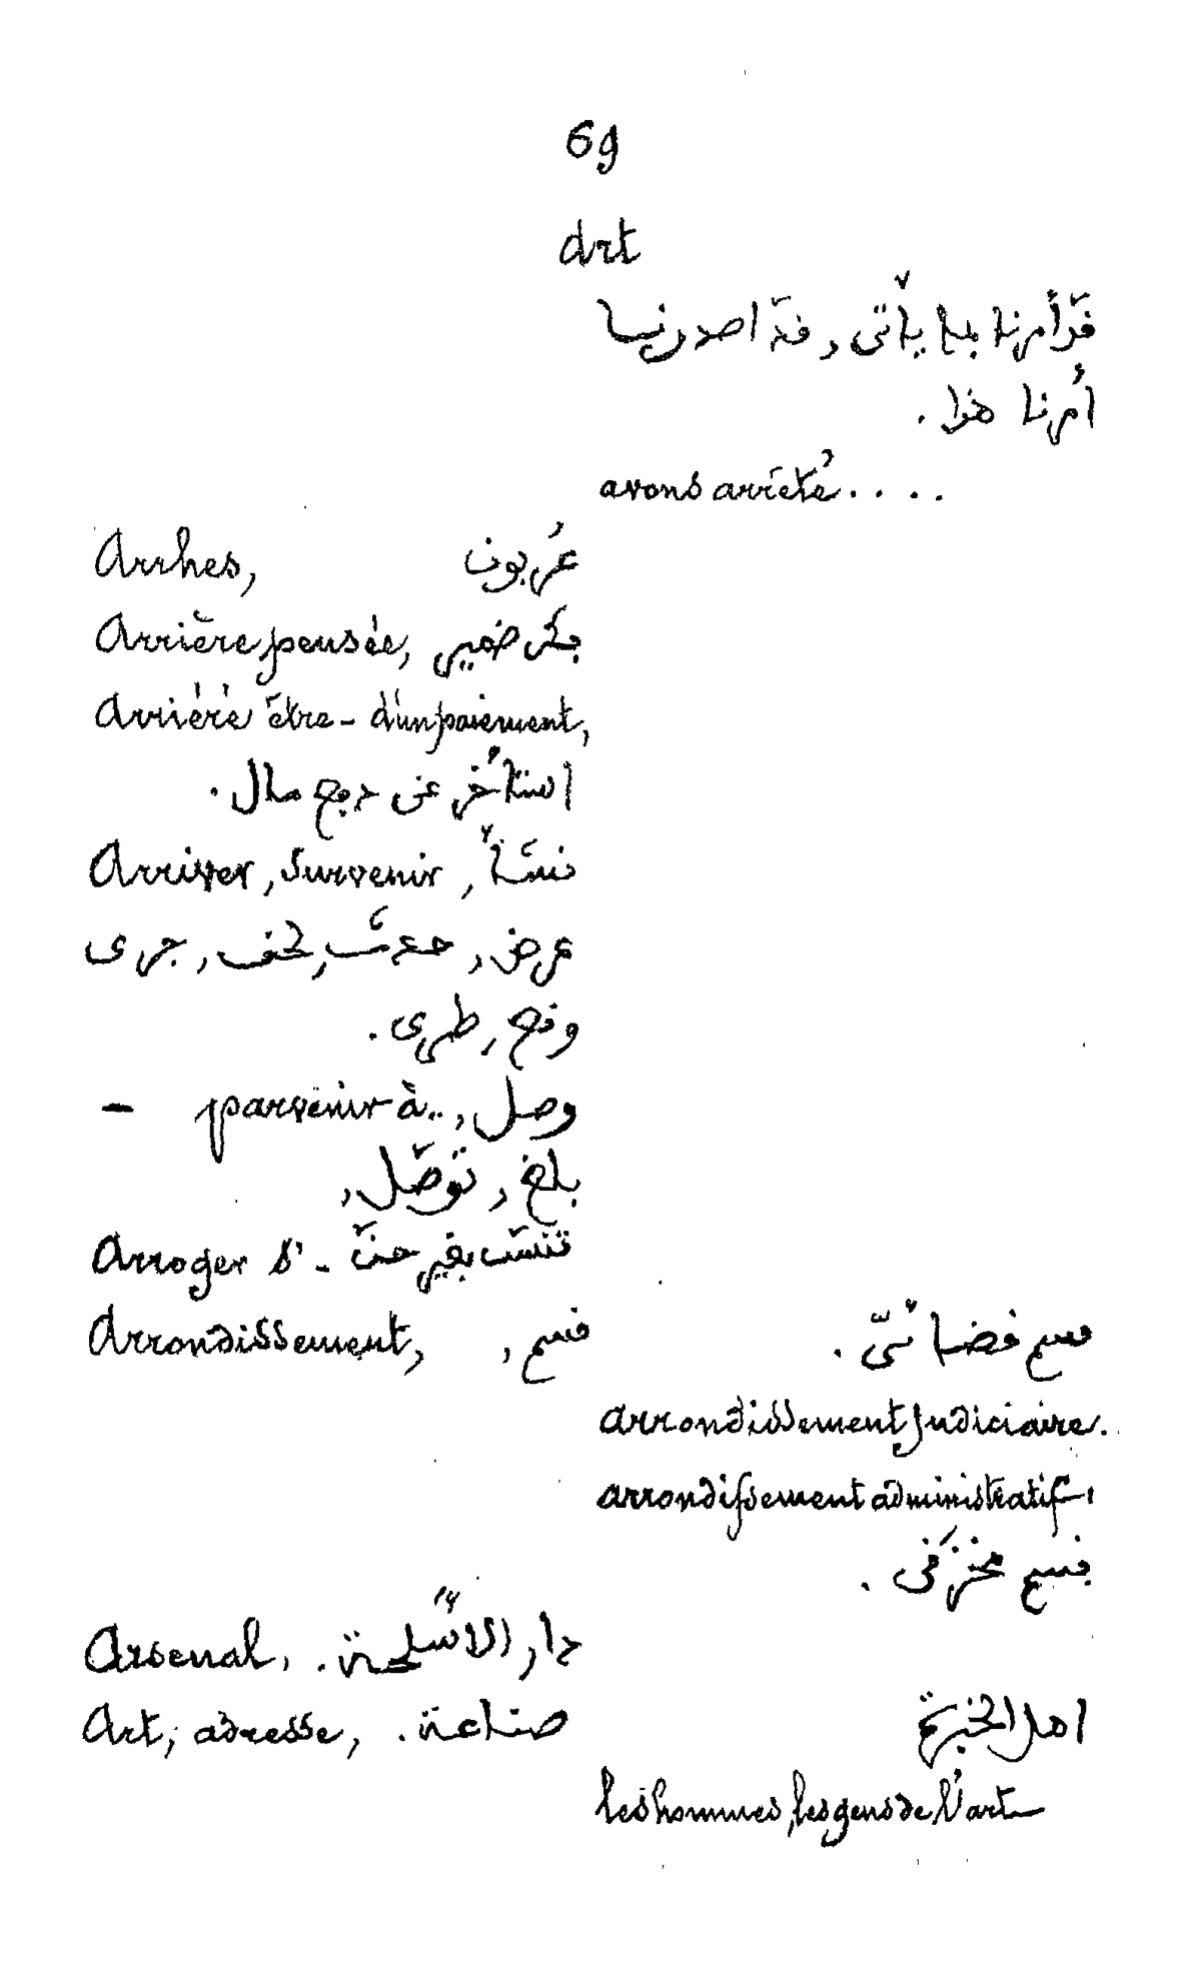 69
Art
قد أمرنا بما يأتى, قد اصدرنا
أمرنا هذا.
avons arrêté.....
Arrhes, عُربون
Arrière pensée, فكر ضمير
Arriéré être - d'un paiement,
استأخر عن دفع مال.
Arriver, survenir, نشأ
عرض, حدث, لحق, جرى
وقع, طرى.
- parvenir à.., وصل
بلغ, توصّل,
Arroger s'- تنسّب بغير حقّ
Arrondissement, قسم,
قسم قضائىّ.
arrondissement judiciaire.
arrondissement administratif.
قسم مخزنى.
Arsenal, دار الأسلحة.
Art, adresse, صناعة.
اهل الخبرة
les hommes, les gens de l'art